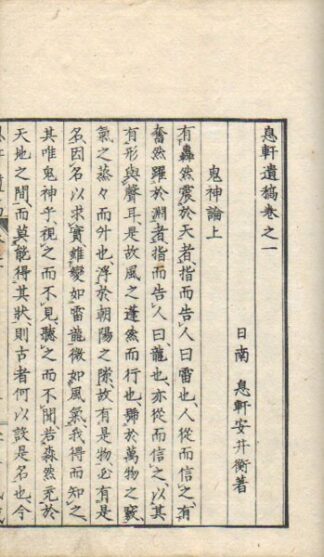 息軒遺稿卷之一
日南 息軒安井衡著
鬼神論上
有轟然震於天者、指而告人曰雷也、人從而信之、有
奮然躍於淵者、指而告人曰龍也、亦從而信之、以其
有形與聲耳、是故風之蓬然而行也、號於萬物之竅、
氣之蒸々而升也、浮於朝陽之隙、故有是物必有是
名、因名以求實、雖變如雷龍、微如風氣、我得而知之、
其唯鬼神乎、視之而不見、聽之而不聞、若森然充於
天地之間、而莫能得其狀、則古者何以設是名也、今